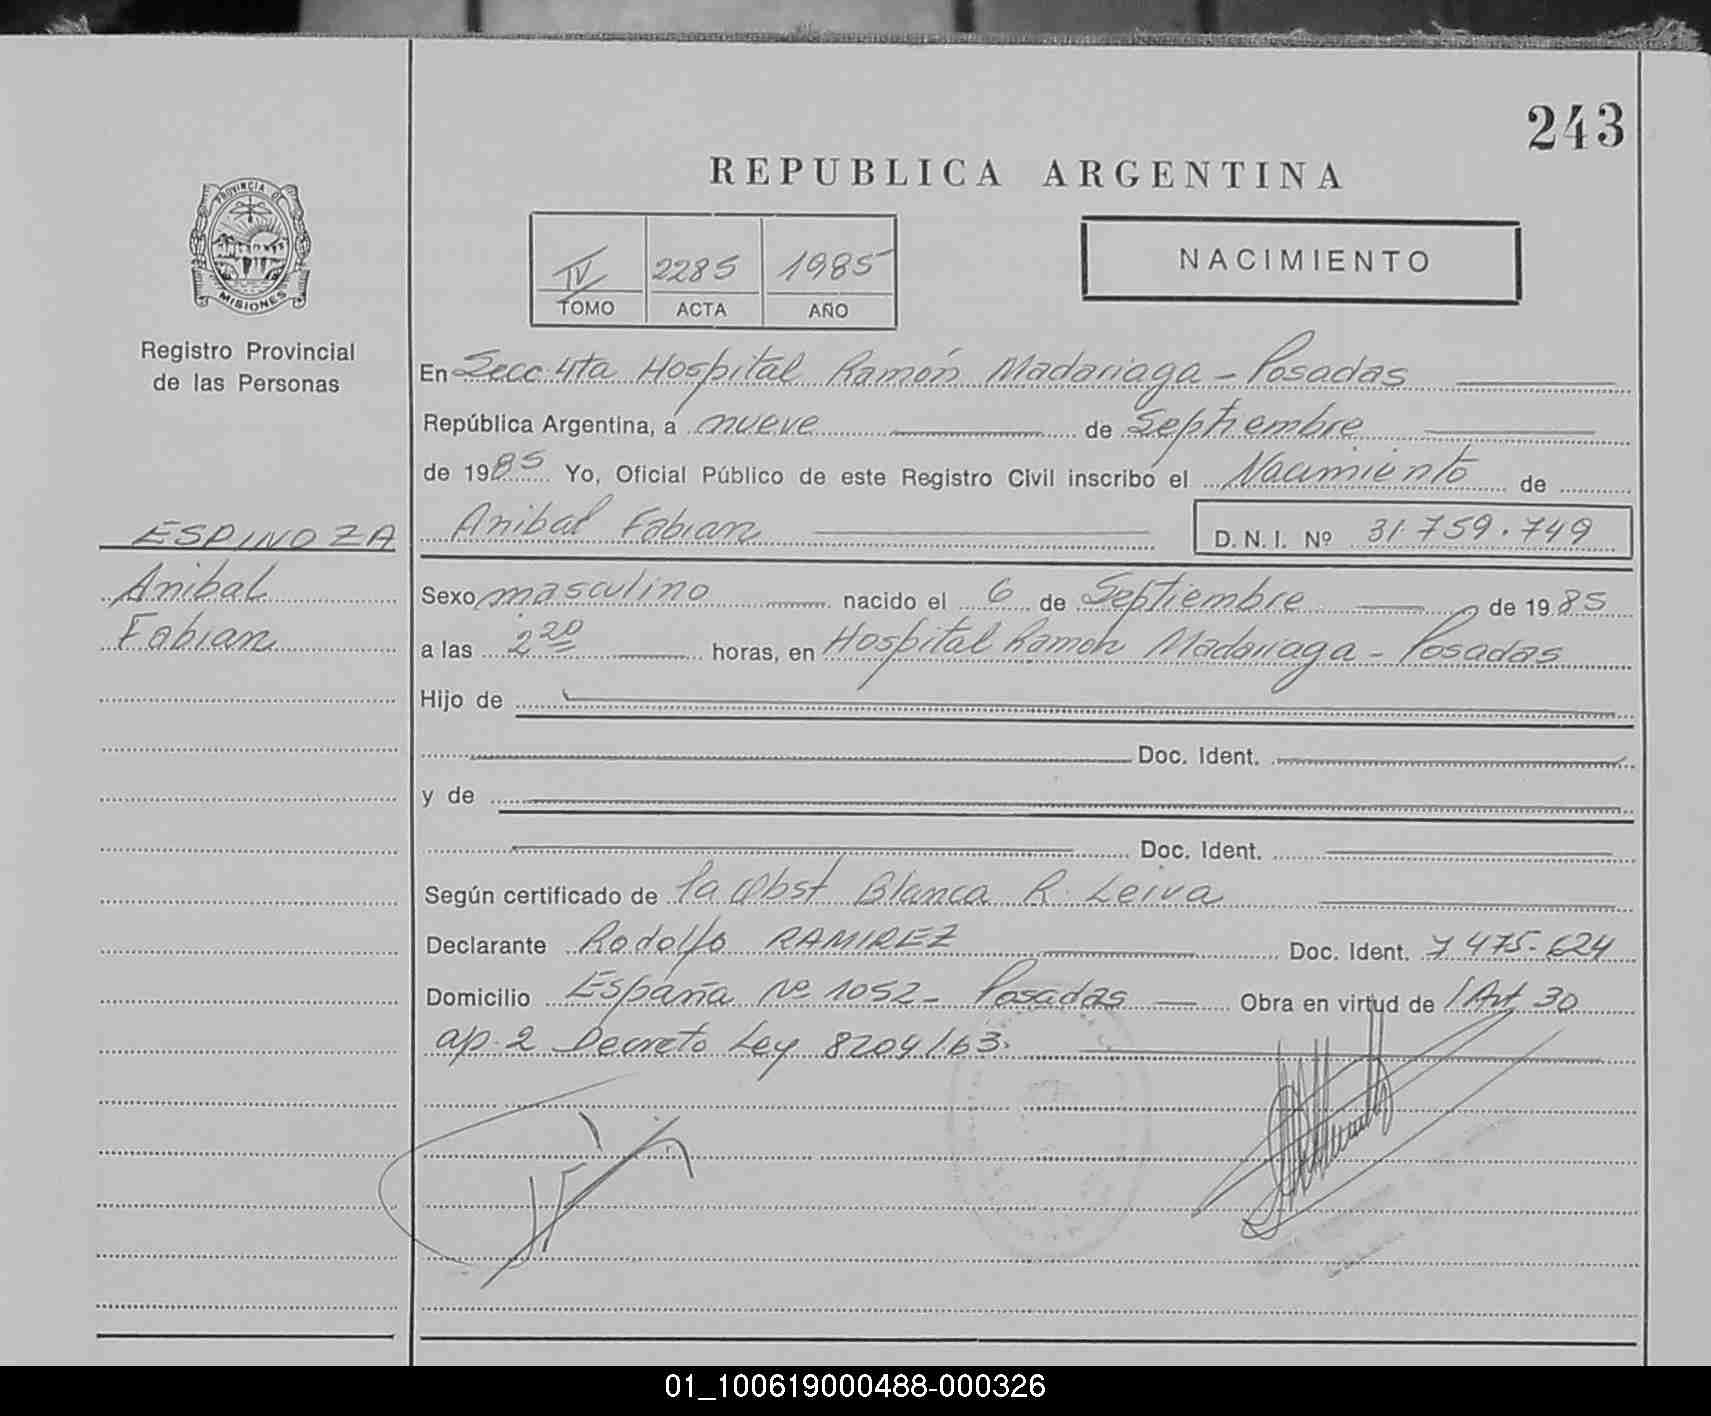 243
REPUBLICA ARGENTINA
PROVINCIA DE MISIONES
IV 2285 1985
TOMO ACTA AÑO
NACIMIENTO
Registro Provincial
de las Personas
En Secc 4ta Hospital Ramón Madariaga - Posadas
República Argentina, a nueve de Septiembre
de 1985 Yo, Oficial Público de este Registro Civil inscribo el Nacimiento de
ESPINOZA
Anibal
Fabian
Anibal Fabian D. N. I. Nº 31.759.749
Sexo masculino nacido el 6 de Septiembre de 1985
a las 2 20 horas, en Hospital Ramon Madariaga - Posadas
Hijo de
Doc. Ident.
y de
Doc. Ident.
Según certificado de la Obst Blanca R. Leiva
Declarante Rodolfo RAMIREZ Doc. Ident. 7 475-624
Domicilio España Nº 1052 - Posadas Obra en virtud de l'Art 30
ap. 2 Decreto Ley 8204/63.
01_100619000488-000326